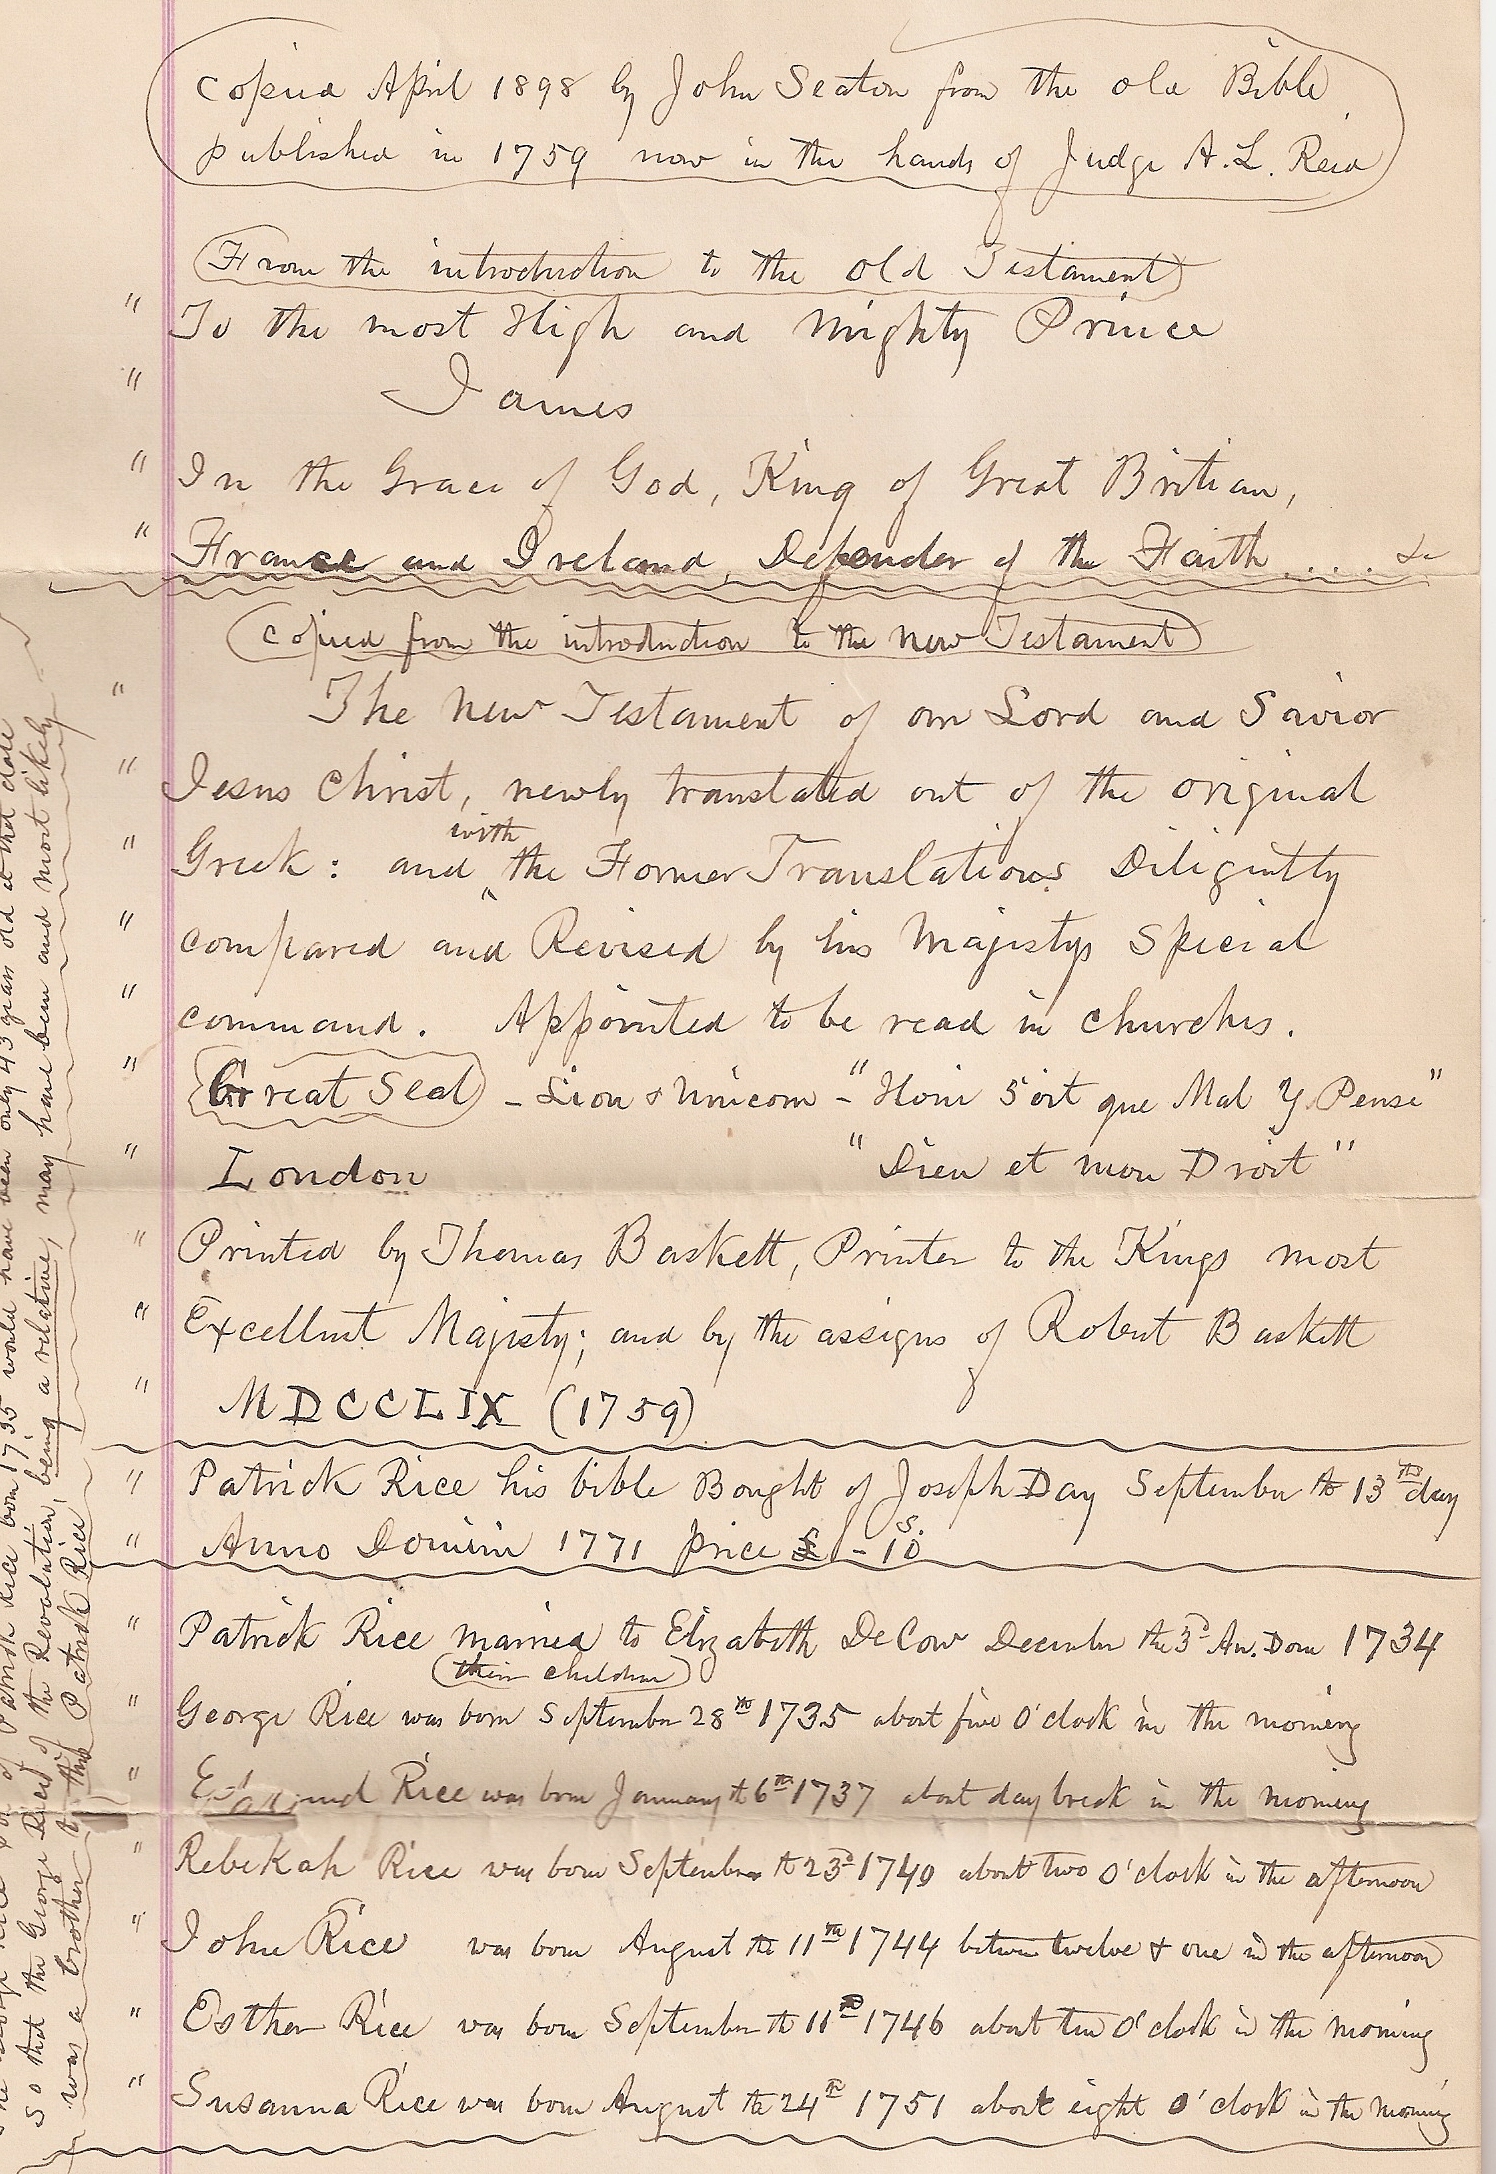 Copied April 1898 by John Seaton from the old Bible
published in 1759 now in the hands of Judge A. L. Reid
From the introduction to the Old Testament
" To the most High and Mighty Prince
" James
" In the Grace of God, King of Great Britian,
" France and Ireland, Defender of the Faith .... &c
Copied from the introduction to the New Testament
" The New Testament of our Lord and Savior
" Jesus Christ, newly translated out of the original
" Greek: and with the Former Translations Diligintly
" compared and Revised by his Majestys Special
" command. Appointed to be read in churches.
" Great Seal - Lion & Unicorn - "Honi Soit que Mal Y Pense"
" London "Dieu et mon Droit"
" Printed by Thomas Baskett, Printer to the Kings most
" Excellent Majesty; and by the assigns of Robert Baskett
" MDCCLIX (1759)
" Patrick Rice his bible Bought of Joseph Day September the 13th day
" Anno Domini 1771 price £ - 10 s.
" Patrick Rice married to Elizabeth DeCow December the 3d An. Dom 1734
(their children)
" George Rice was born September 28th 1735 about five O'clock in the morning
" Rice was born January th 6th 1737 about day break in the morning
" Rebekah Rice was born September th 23d 1740 about two O'clock in the afternoon
" John Rice was born August the 11th 1744 between twelve & one in the afternoon
" Esther Rice was born September th 11th 1746 about ten O'clock in the morning
" Susanna Rice was born August the 24th 1751 about eight O'clock in the morning
Patrick Rice born 1735 would have been only 43 years old at that date
So that the George Rice of the Revolution, being a relative, may have been and most likely
was a brother to this Patrick Rice